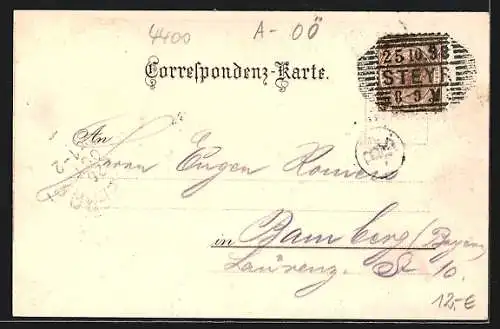 4400
A - OÖ
25 10 98
STEYR
8-9 V
Correspondenz-Karte.
An
Herrn Eugen Romeis
in Bamberg (Bayern)
Laurenz. St 10.
12,-€